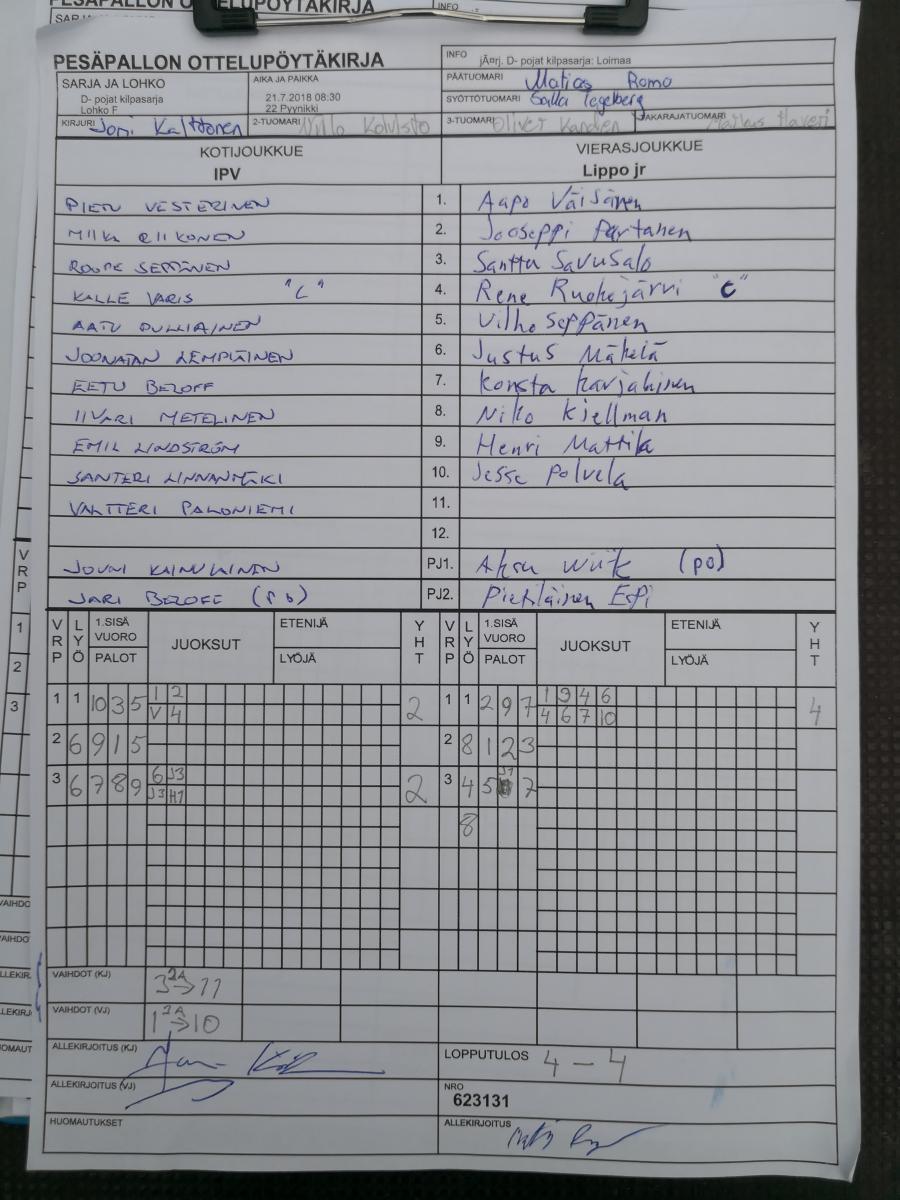 PESÄPALLON OTTELUPÖYTÄKIRJA
INFO jÃ¤rj. D- pojat kilpasarja: Loimaa
SARJA JA LOHKO
D- pojat kilpasarja
Lohko F
AIKA JA PAIKKA
21.7.2018 08:30
22 Pyynikki
PÄÄTUOMARI Matias Romo
SYÖTTÖTUOMARI Salla
KIRJURI Joni Kalttonen
2-TUOMARI Niilo Koivisto
3-TUOMARI Oliver
TAKARAJATUOMARI Markus Haveri
KOTIJOUKKUE
IPV
VIERASJOUKKUE
Lippo jr
PIETU VESTERINEN 1. Aapo Väisänen
MIIKA RIIKONEN 2. Jooseppi Partanen
ROOPE SEPPÄNEN 3. Santtu Savusalo
KALLE VARIS "C" 4. Rene Ruokojärvi "C"
AATU PULLIAINEN 5. Vilho Seppänen
JOONATAN LEMPIÄINEN 6. Justus Mäkelä
EETU BELOFF 7. Konsta Karjahinen
IIVARI METELINEN 8. Niko Kjellman
EMIL LINDSTRÖM 9. Henri Mattila
SANTERI LINNANMÄKI 10. Jesse Polvela
VALTTERI PALONIEMI 11.
12.
JOUNI KAINULAINEN PJ1. Aksu Wiik (po)
JARI BELOFF (pb) PJ2. Pietiläinen Espi
VRP LYÖ 1.SISÄ VUORO PALOT JUOKSUT ETENIJÄ LYÖJÄ YHT VRP LYÖ 1.SISÄ VUORO PALOT JUOKSUT ETENIJÄ LYÖJÄ YHT
1 1 10 3 5 1 2 2 1 1 2 9 7 1 9 4 6 4
V 4 4 6 7 10
2 6 9 1 5 2 8 1 2 3
3 6 7 8 9 6 J3 2 3 4 5 J1 7
J3 H1
8
VAIHDOT (KJ) 3 2A→ 11
VAIHDOT (VJ) 1 2A→ 10
ALLEKIRJOITUS (KJ)
LOPPUTULOS 4 - 4
ALLEKIRJOITUS (VJ)
NRO
623131
HUOMAUTUKSET
ALLEKIRJOITUS